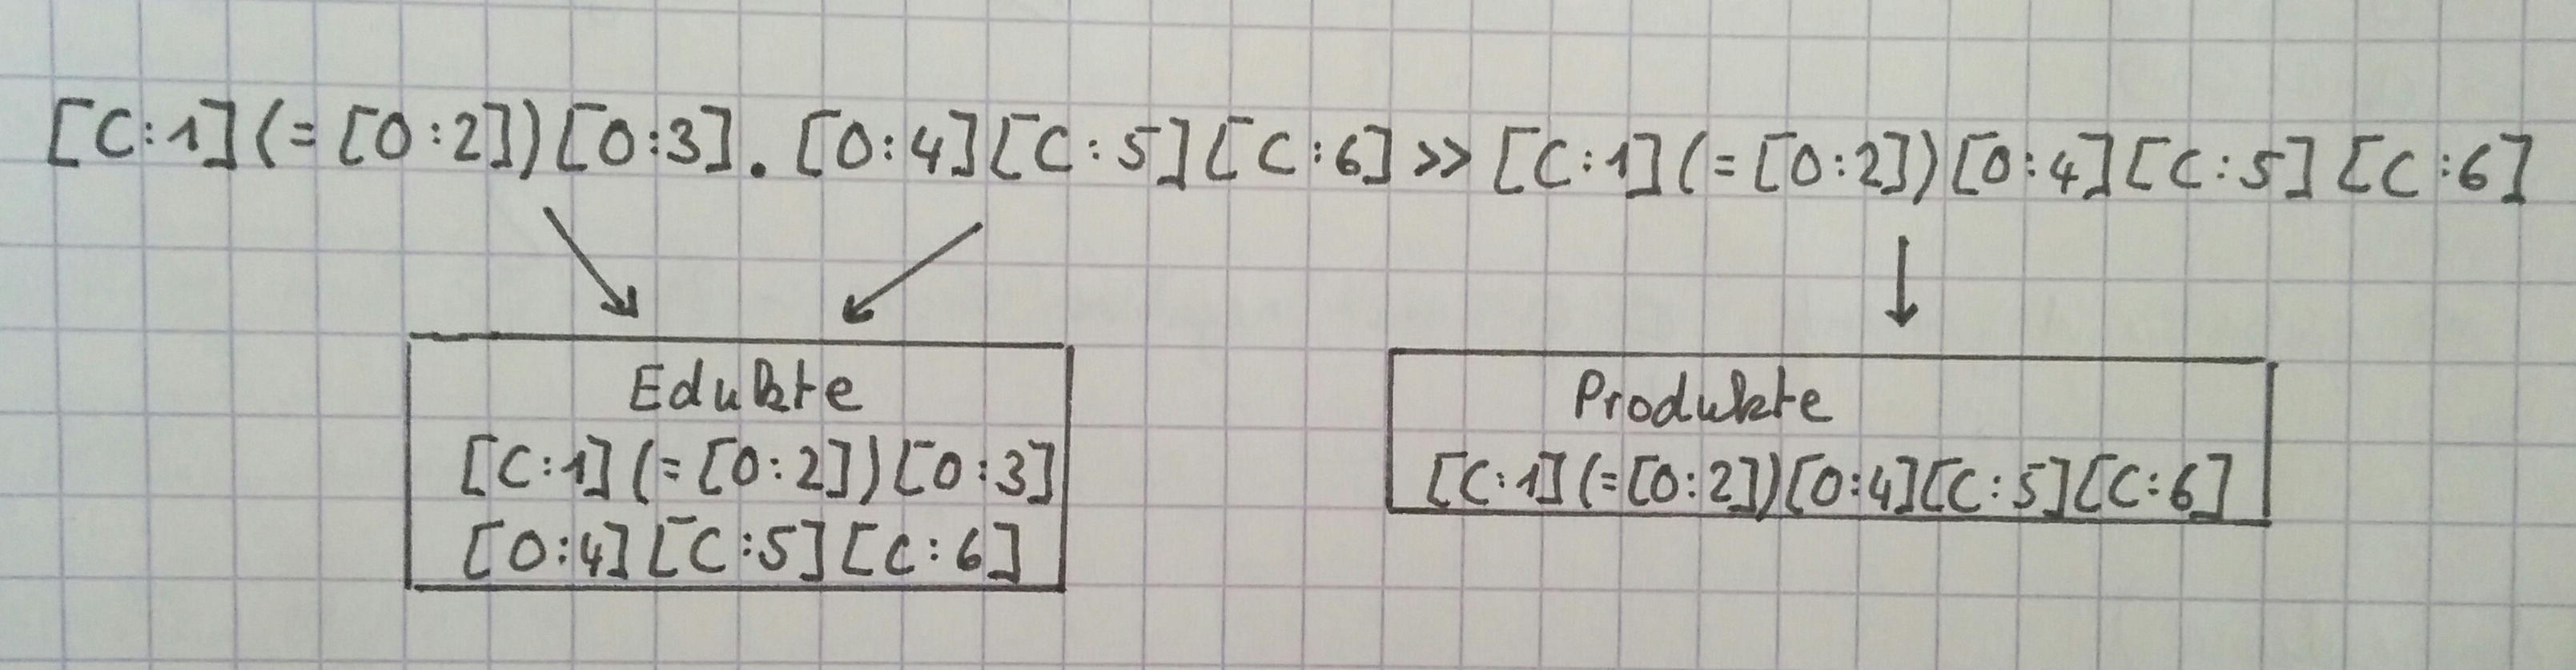 [C:1](=[O:2])[O:3].[O:4][C:5][C:6]>>[C:1](=[O:2])[O:4][C:5][C:6]
Edukte
[C:1](=[O:2])[O:3]
[O:4][C:5][C:6]
Produkte
[C:1](=[O:2])[O:4][C:5][C:6]